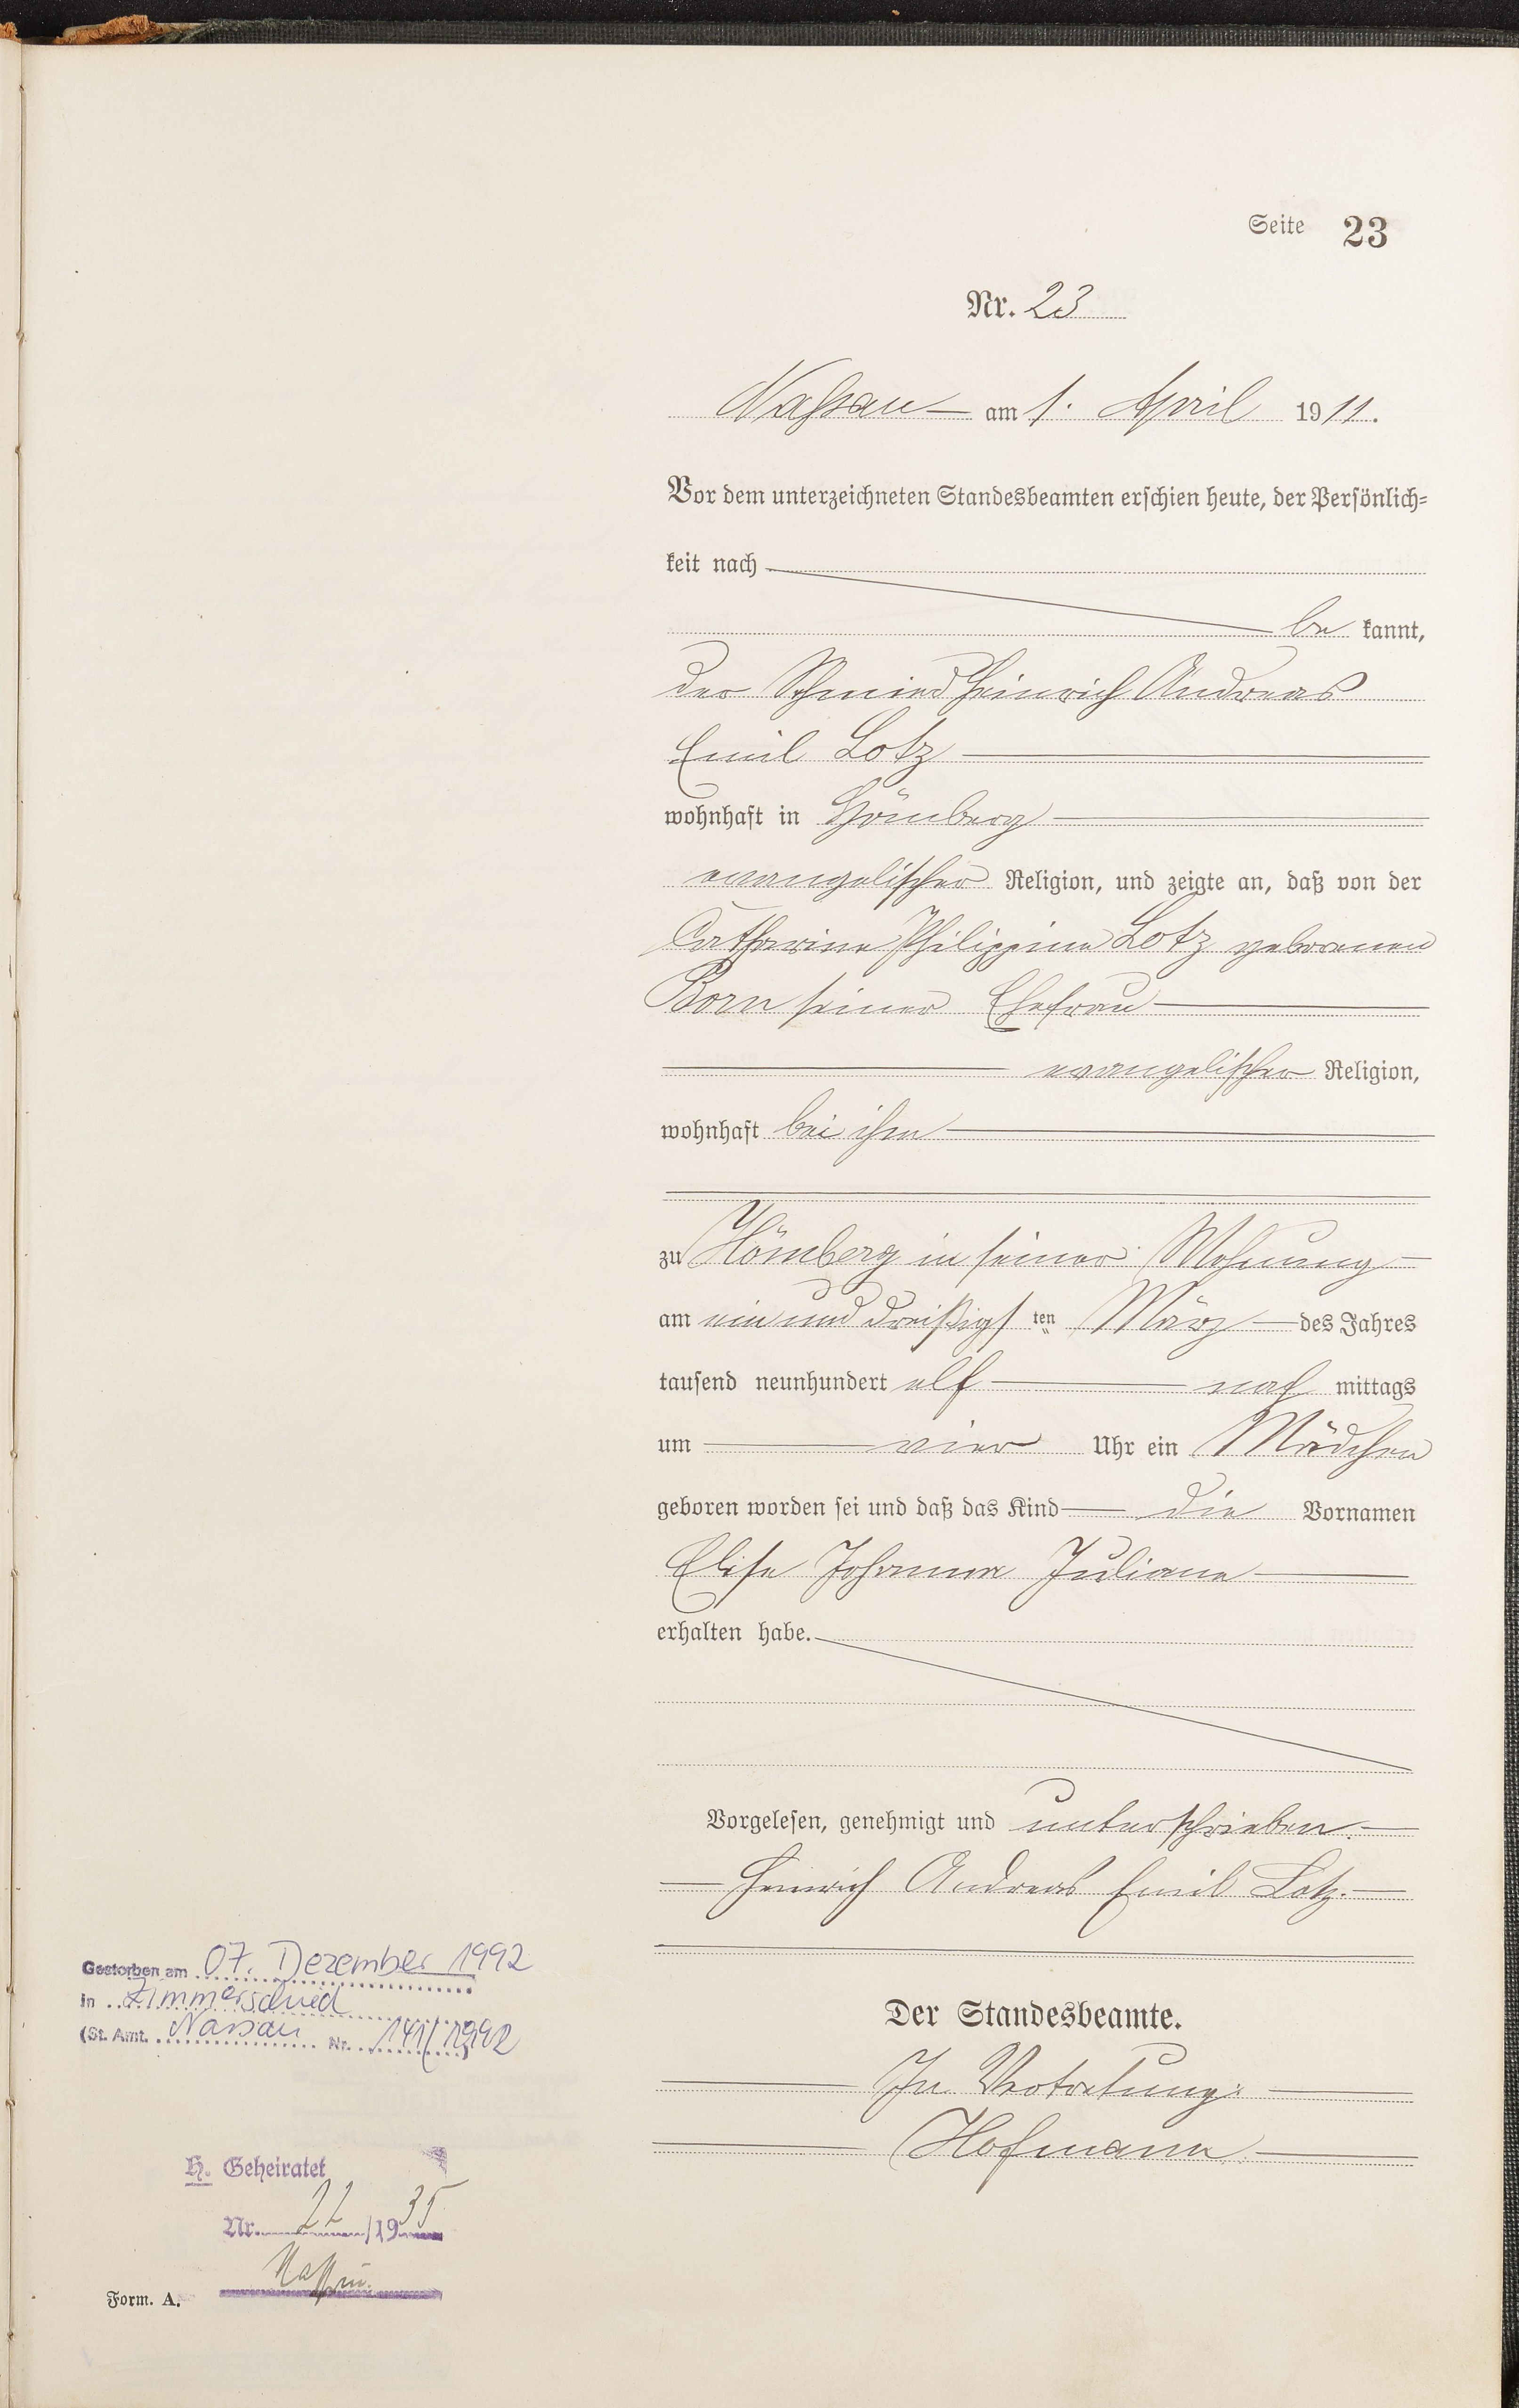 Seite 23
Nr. 23
Nassau am 1. April 1911.
Vor dem unterzeichneten Standesbeamten erschien heute, der Persönlich=
keit nach
be kannt,
der Schmied Heinrich Andreas
Emil Lotz
wohnhaft in Hömberg
evangelischer Religion, und zeigte an, daß von der
Catharine Philippine Lotz geborenen
Born seiner Ehefrau
evangelischer Religion,
wohnhaft bei ihm
zu Hömberg in seiner Wohnung
am ein und dreißigsten März des Jahres
tausend neunhundert elf nach mittags
um vier Uhr ein Mädchen
geboren worden sei und daß das Kind die Vornamen
Elise Johanna Juliane
erhalten habe.
Vorgelesen, genehmigt und unterschrieben.
Heinrich Andreas Emil Lotz.
Der Standesbeamte.
In Vertretung:
Hofmann.
Gestorben am 07. Dezember 1992
in Zimmerschied
(St. Amt. Nassau Nr. 141/1992)
H. Geheiratet
Nr. 22/1935
Nassau.
Form. A.